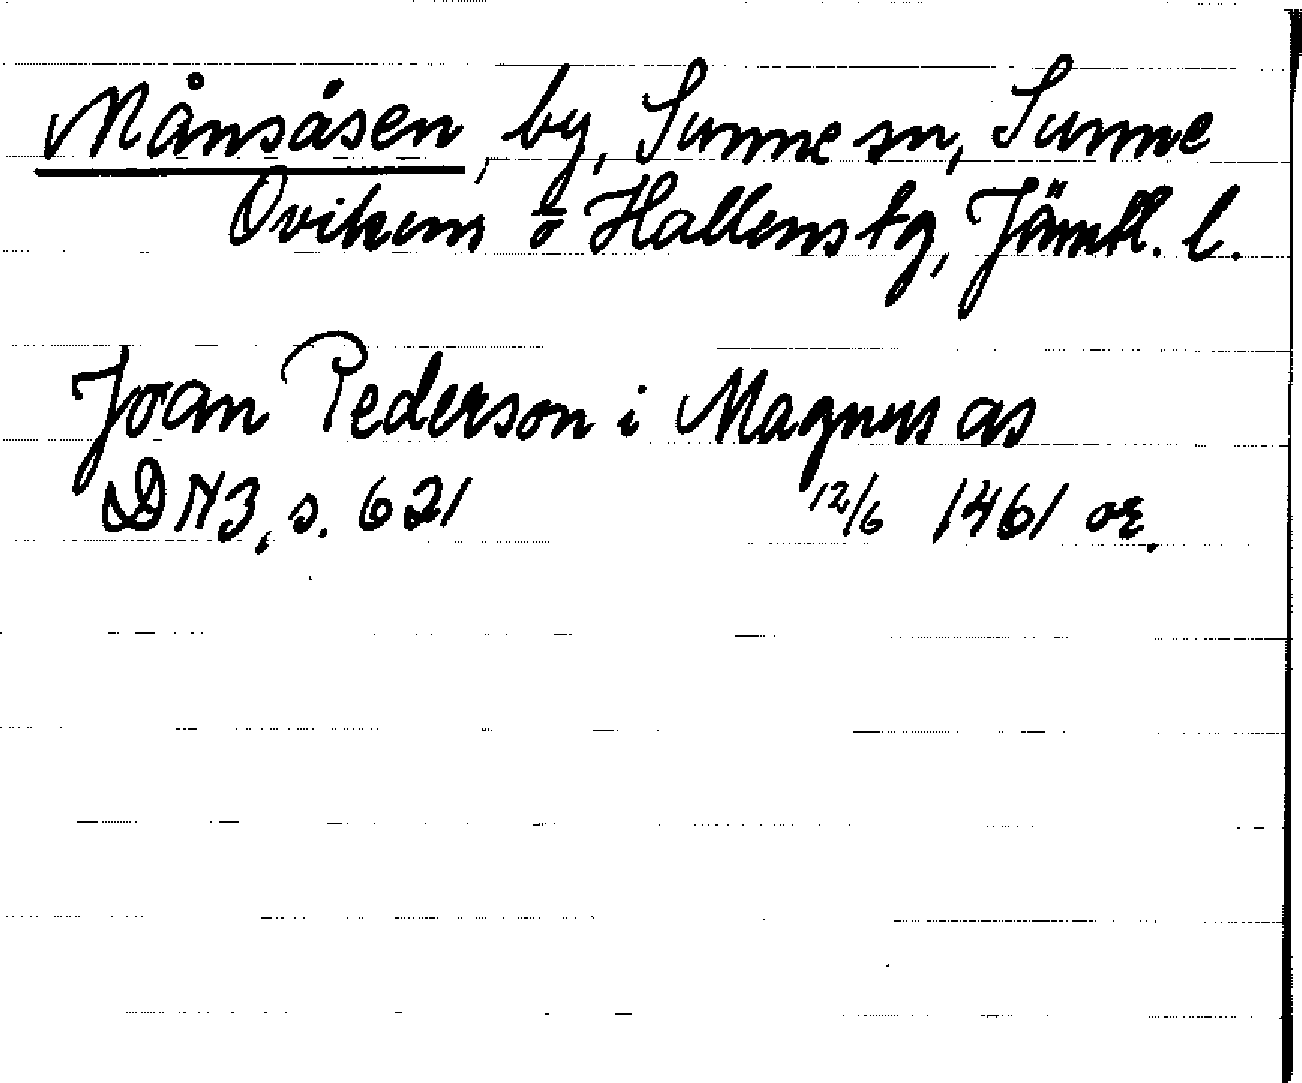 Månsåsen, by, Sunne sn, Sunne
Ovikens o Hallens tg, Jämtl. l.
Joan Pederson i Magnus as
DN3, s. 621 12/6 1461 or.